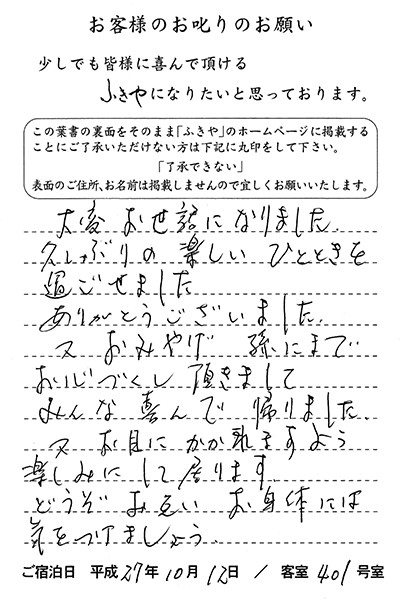 お客様のお叱りのお願い
少しでも皆様に喜んで頂ける
ふきやになりたいと思っております。
この葉書の裏面をそのまま「ふきや」のホームページに掲載する
ことにご了承いただけない方は下記に丸印をして下さい。
「了承できない」
表面のご住所、お名前は掲載しませんので宜しくお願いいたします。
大変 お世話になりました。
久しぶりの 楽しい ひとときを
過ごせました
ありがとうございました。
又 おみやげ 孫にまで
お心づくし 頂きまして
みんな 喜んで 帰りました。
又 お目に かかれますよう
楽しみに して居ります。
どうぞ お互い お身体には
気をつけましょう。
ご宿泊日 平成27年10月12日 / 客室 401号室